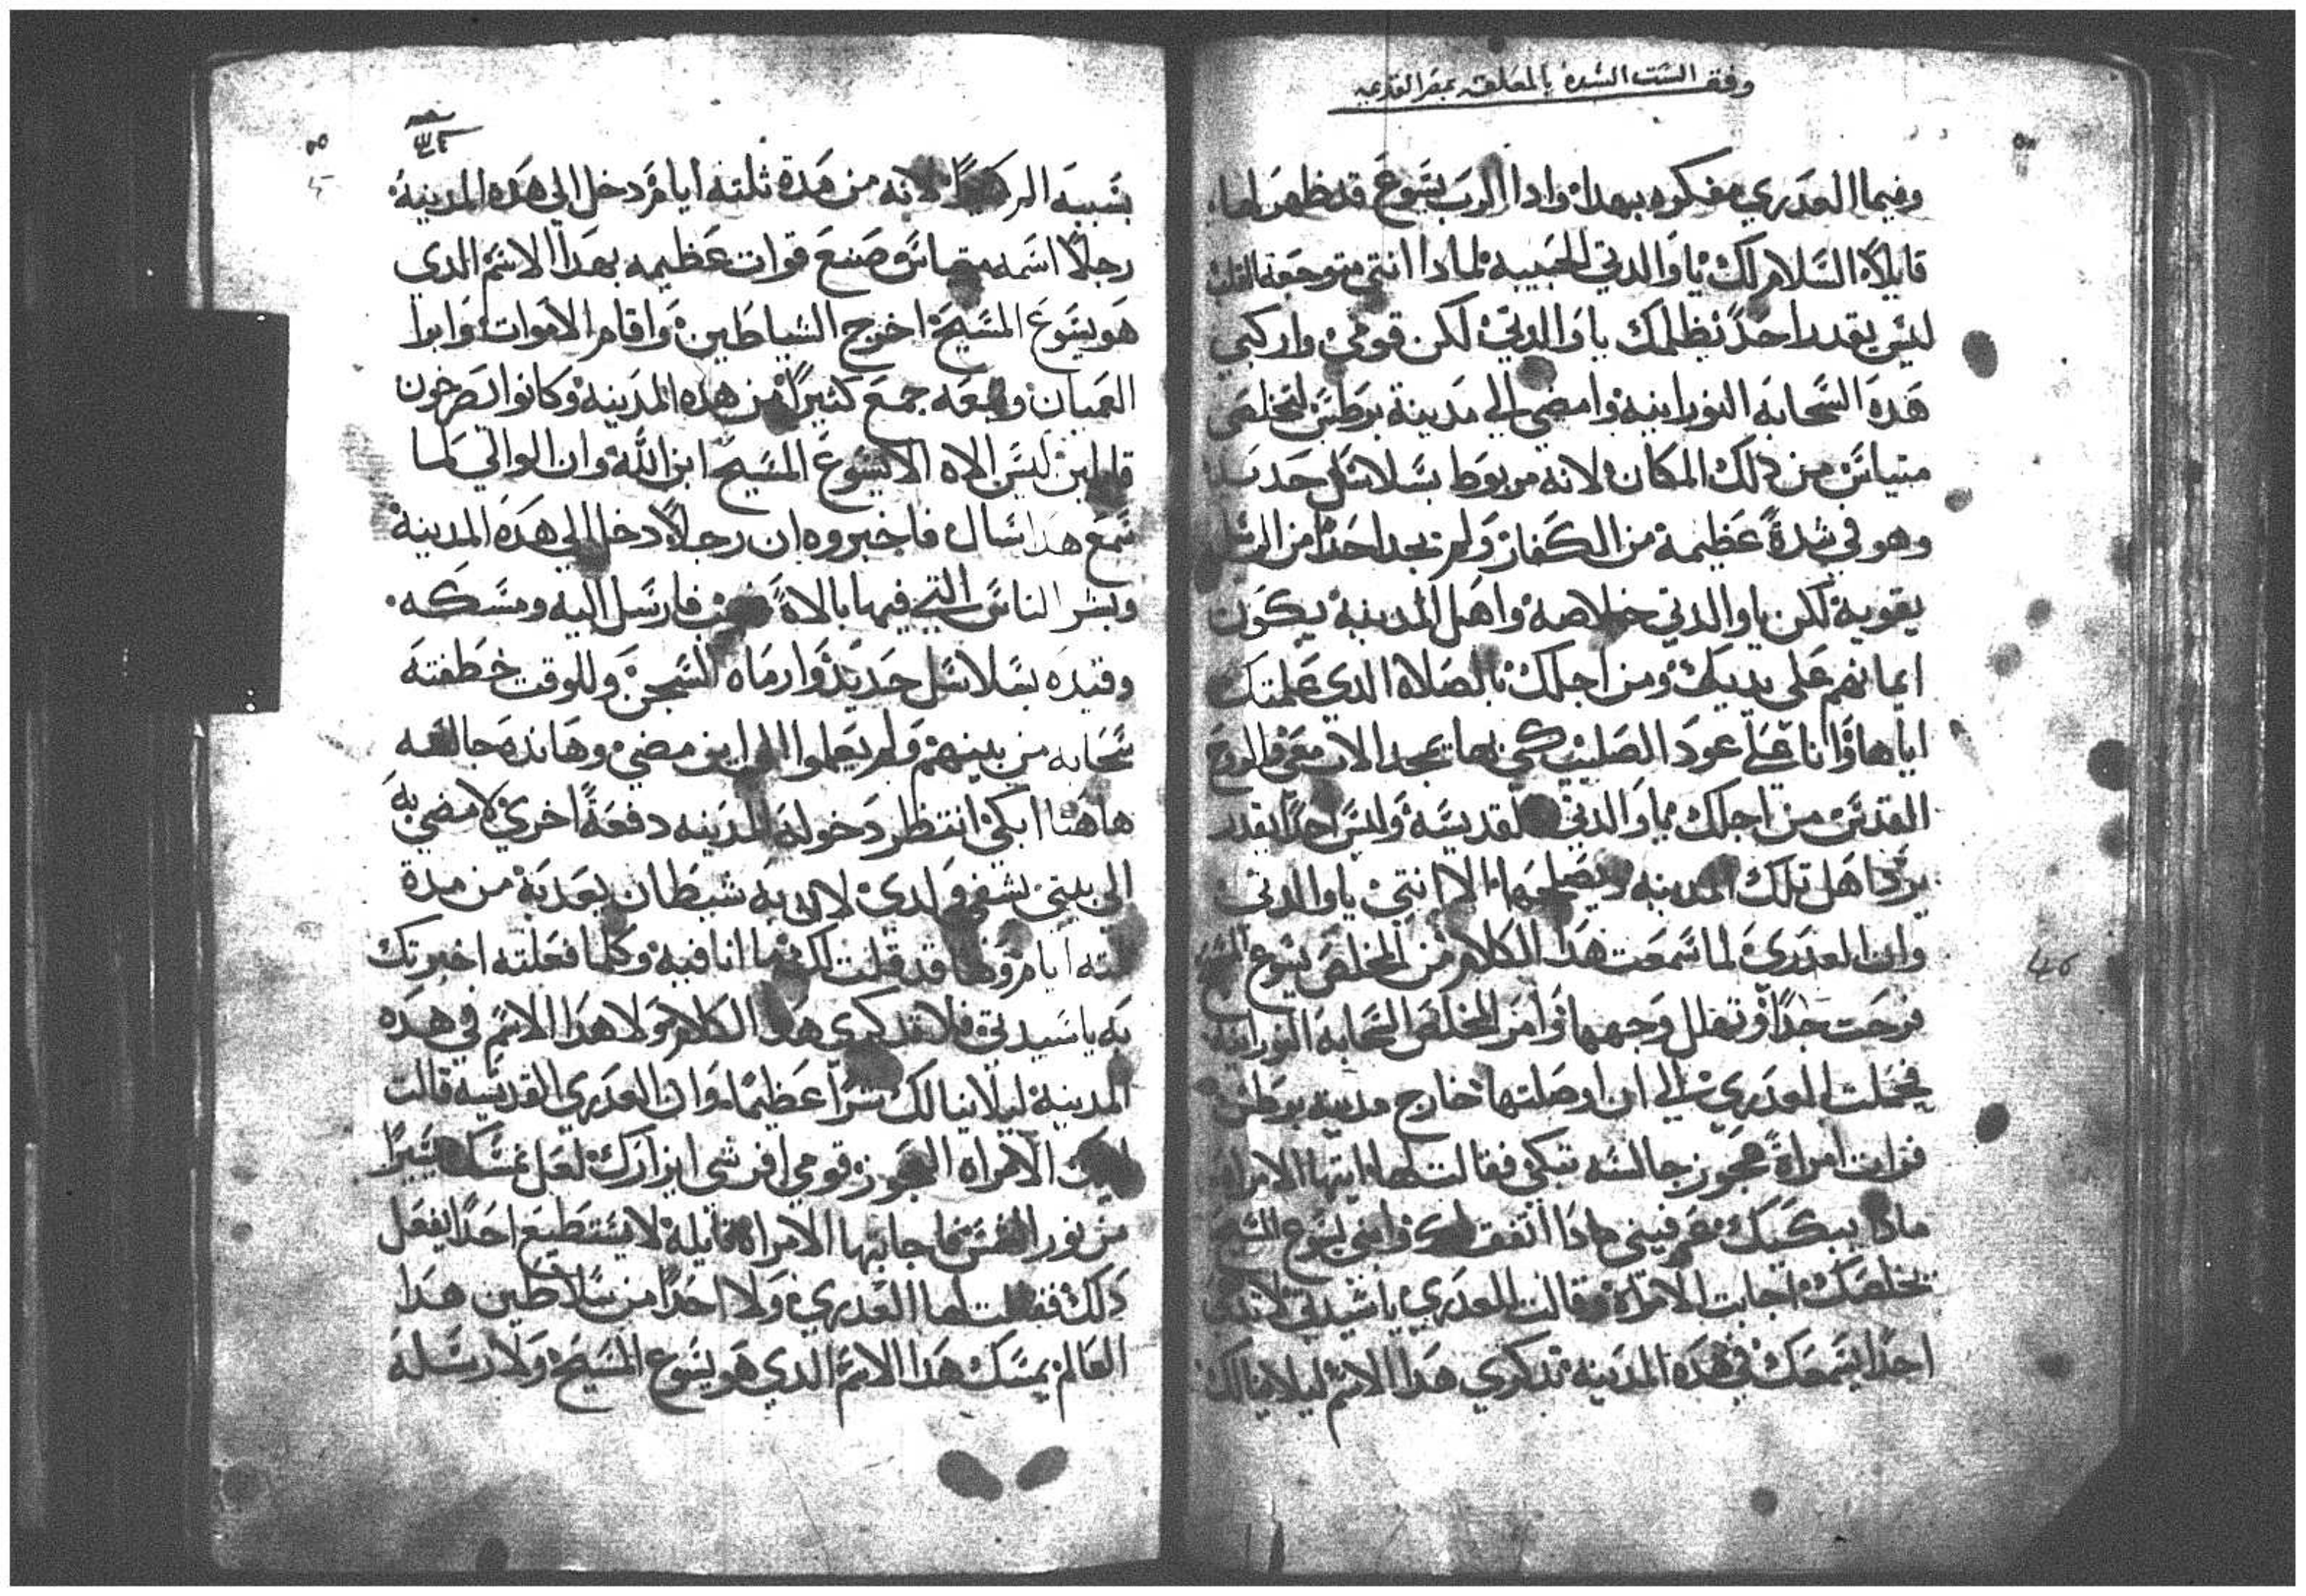 وقف الست السيدة بالمعلقه بمصر القديمه
وفيما العدري مفكره بهدا وادا الرب يسوع قد ظهر لها
قايلاً السلام لك يا والدتي الحبيبه لمادا انتي متوجعة القلب
ليس يقدر احدً يظلمك يا والدتي لكن قومي واركبي
هده السحابه النورانيه وامضي الي مدينة برطس لتخلصي
متياس من دلك المكان لانه مربوط بسلاسل حديد
وهو في شدةً عظيمة من الكفار ولم يجد احدًا من
يقويه لكن يا والدتي خلاصه واهل المدينة يكون
ايمانهم علي يديك ومن اجلك بالصلاه الدي علمتك
اياها وانا علي عود الصليب
القدس من اجلك يا والدتي القديسه وليس احدًا يقدر
يرد اهل تلك المدينه ويصلحها الا انتي يا والدتي
وان العدري لما سمعت هدا الكلام من المخلص يسوع المسيح
فرحت جدًا وتهلل وجهها وامر المخلص السحابه النورانيه
فحملت العدري الي ان اوصلتها خارج مدينة برطس
فرات امراةً عجوز جالسه تبكي فقالت لها ايتها الامراه
مادا يبكيك عرفيني مادا اتفق لك وابني يسوع المسيح
يخلصك اجابت الامراة وقالت للعدري يا سيدتي لا تدعي
احدًا يسمعك في هده المدينه تدكري هدا الاسم ليلا ينالك
بسببه لانه من مدة ثلته ايام دخل الي هده المدينة
رجلاً اسمه متياس وصنع قوات عظيمه بهدا الاسم الدي
هو يسوع المسيح اخرج الشياطين واقام الاموات وابرا
العميان وتبعه جمع كثيرًا من هده المدينه وكانوا يصرخون
قايلين ليس الاه الا يسوع المسيح ابن الله وان الوالي لما
سمع هدا سال فاخبروه ان رجلاً دخل الي هده المدينة
وبشر الناس التي فيها بالاهً فارسل اليه ومسكه
وقيده بسلاسل حديد وارماه السجن وللوقت خطفته
سحابه من بينهم ولم يعلموا الي اين مضي وها نده جالسه
هاهنا ابكي انتظر دخوله المدينه دفعةً اخري لامضي به
الي بيتي يشفي ولدي لان به شيطان يعدبه من مدة
ثلته ايام وها قد قلت لك ما انا فيه وكلما فعلته اخبرتك
به يا سيدتي فلا تدكري هدا الكلام ولا هدا الاسم في هده
المدينة ليلا ينالك شرًا عظيمًا وان العدري القديسه قالت
لتلك الامراه العجوز قومي افرشي ايزارك لعل نمسك يسيرًا
من نور الشمس فاجابتها الامراة قايلة لا يستطيع احدًا يفعل
دلك فقالت لها العدري ولا احدًا من سلاطين هدا
العالم يمسك هدا الاسم الدي هو يسوع المسيح ولا رسله